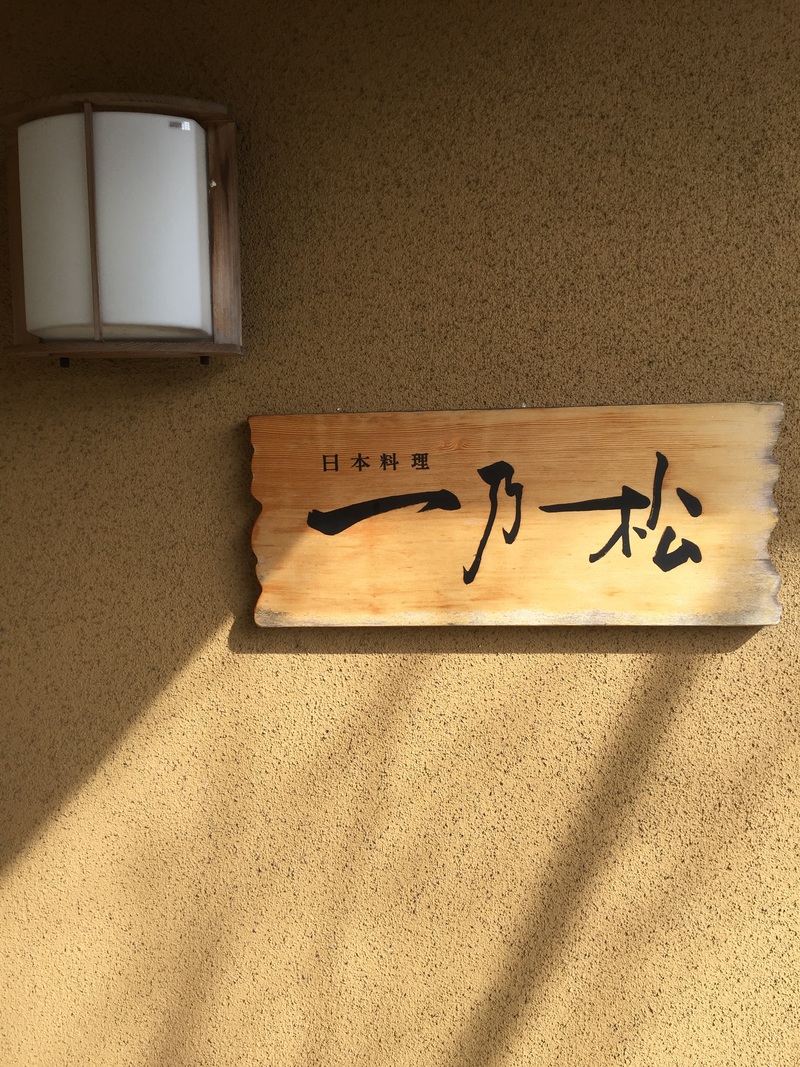 日本料理
一乃松